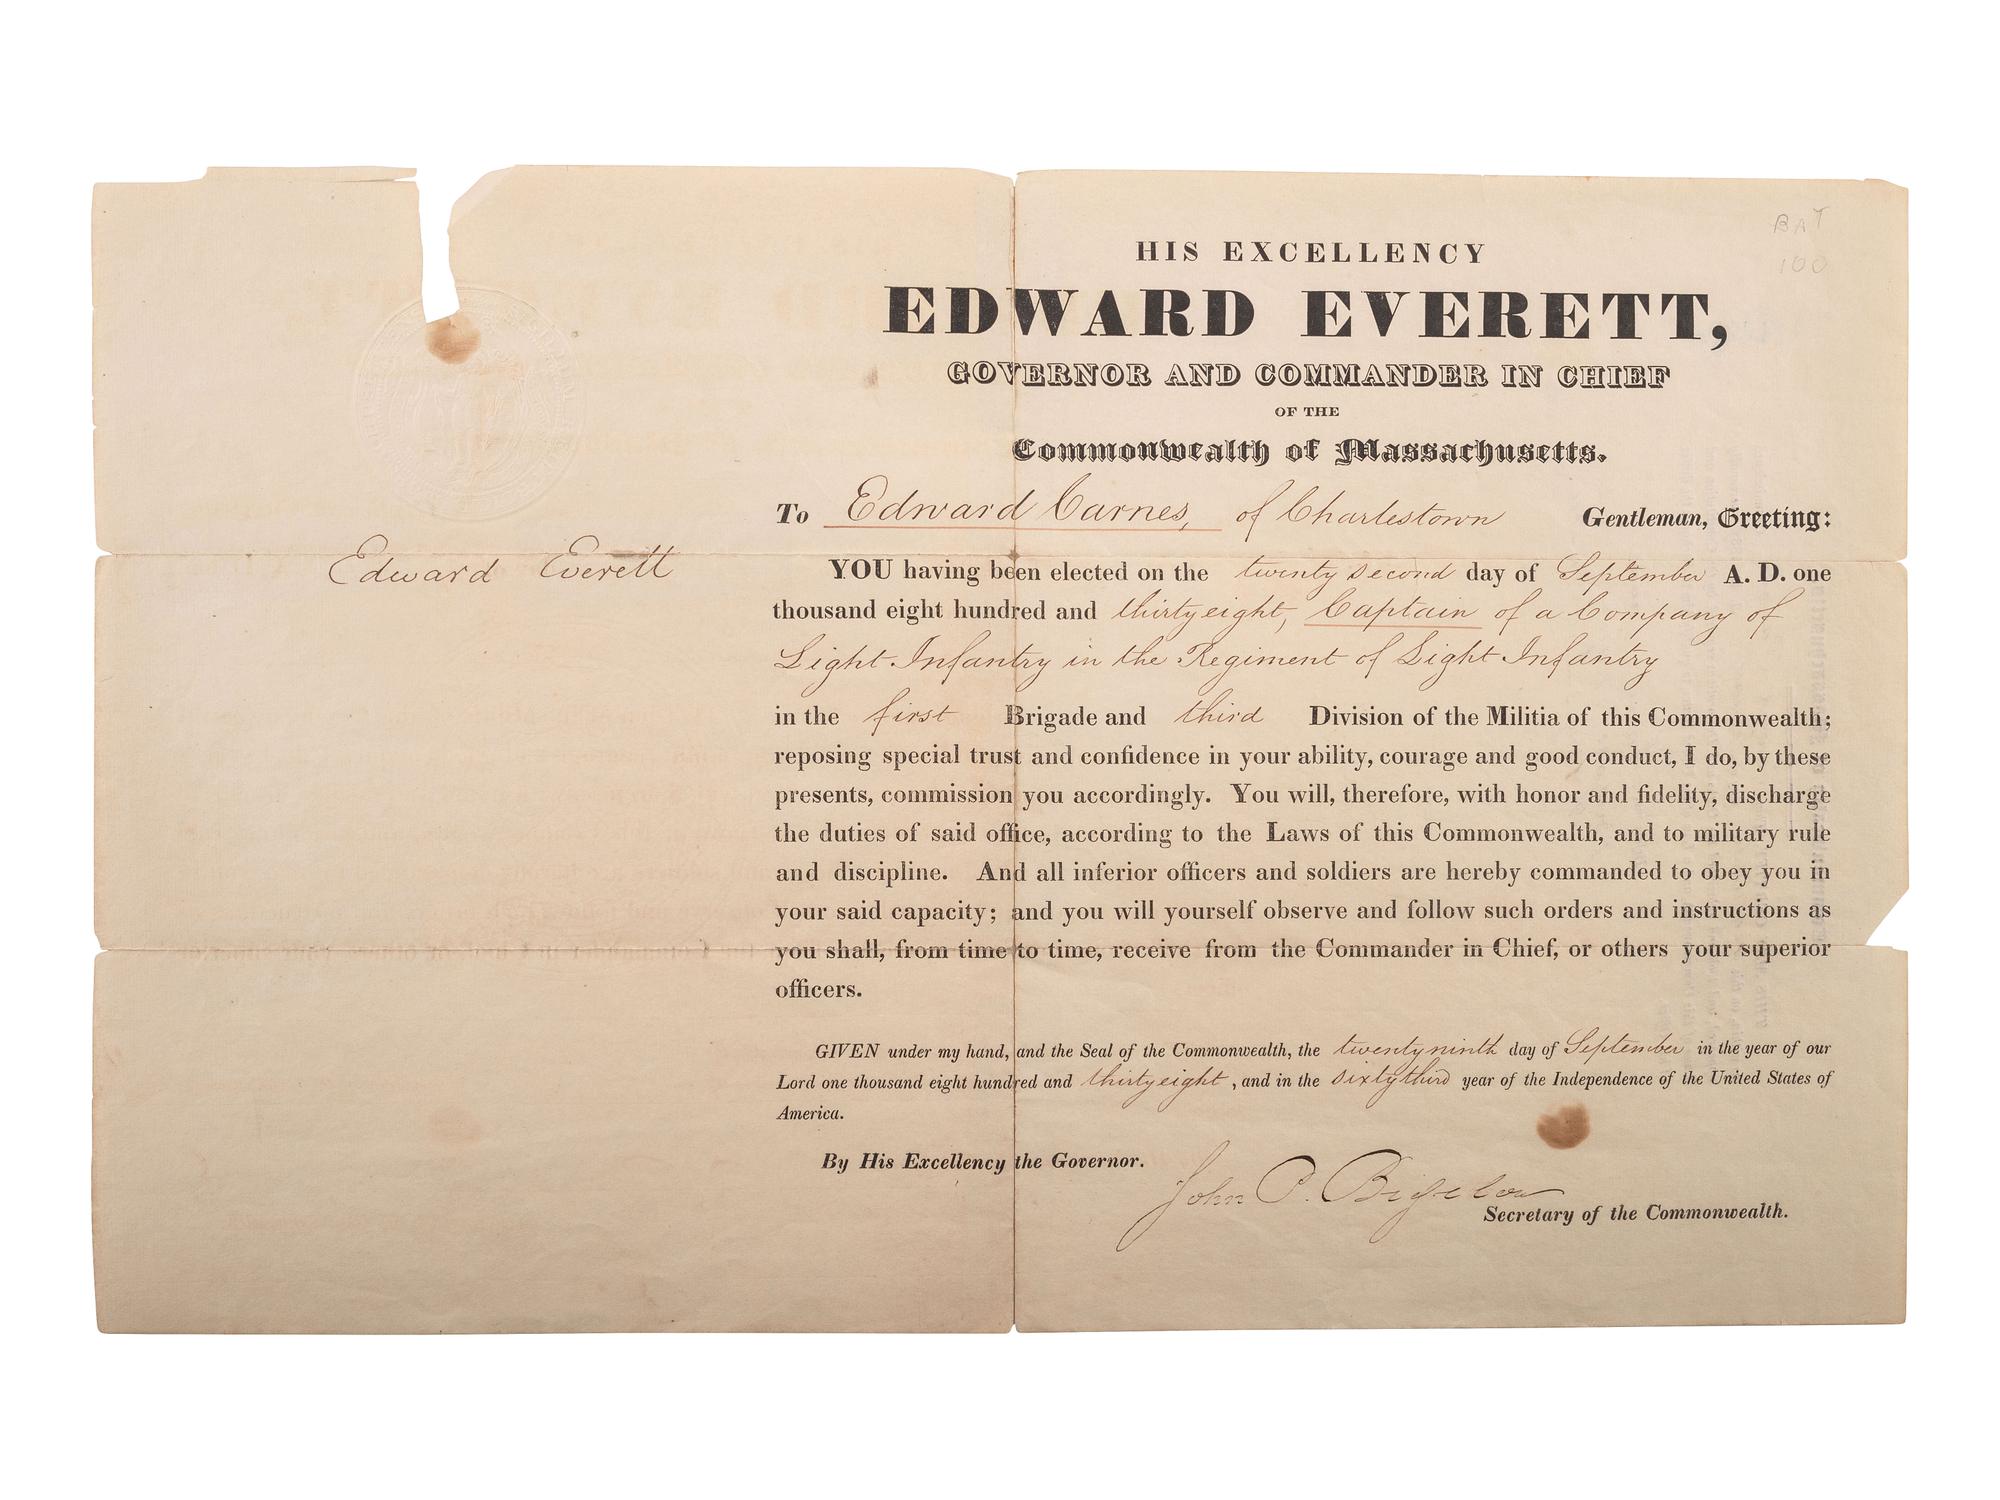 BAT
100
HIS EXCELLENCY
EDWARD EVERETT,
GOVERNOR AND COMMANDER IN CHIEF
OF THE
Commonwealth of Massachusetts.
To Edward Carnes, of Charlestown Gentleman, Greeting:
Edward Everett
YOU having been elected on the twenty second day of September A. D. one
thousand eight hundred and thirty eight, Captain of a Company of
Light Infantry in the Regiment of Light Infantry
in the first Brigade and third Division of the Militia of this Commonwealth;
reposing special trust and confidence in your ability, courage and good conduct, I do, by these
presents, commission you accordingly. You will, therefore, with honor and fidelity, discharge
the duties of said office, according to the Laws of this Commonwealth, and to military rule
and discipline. And all inferior officers and soldiers are hereby commanded to obey you in
your said capacity; and you will yourself observe and follow such orders and instructions as
you shall, from time to time, receive from the Commander in Chief, or others your superior
officers.
GIVEN under my hand, and the Seal of the Commonwealth, the twenty ninth day of September in the year of our
Lord one thousand eight hundred and thirty eight, and in the sixty third year of the Independence of the United States of
America.
By His Excellency the Governor.
John P. Bigelow
Secretary of the Commonwealth.